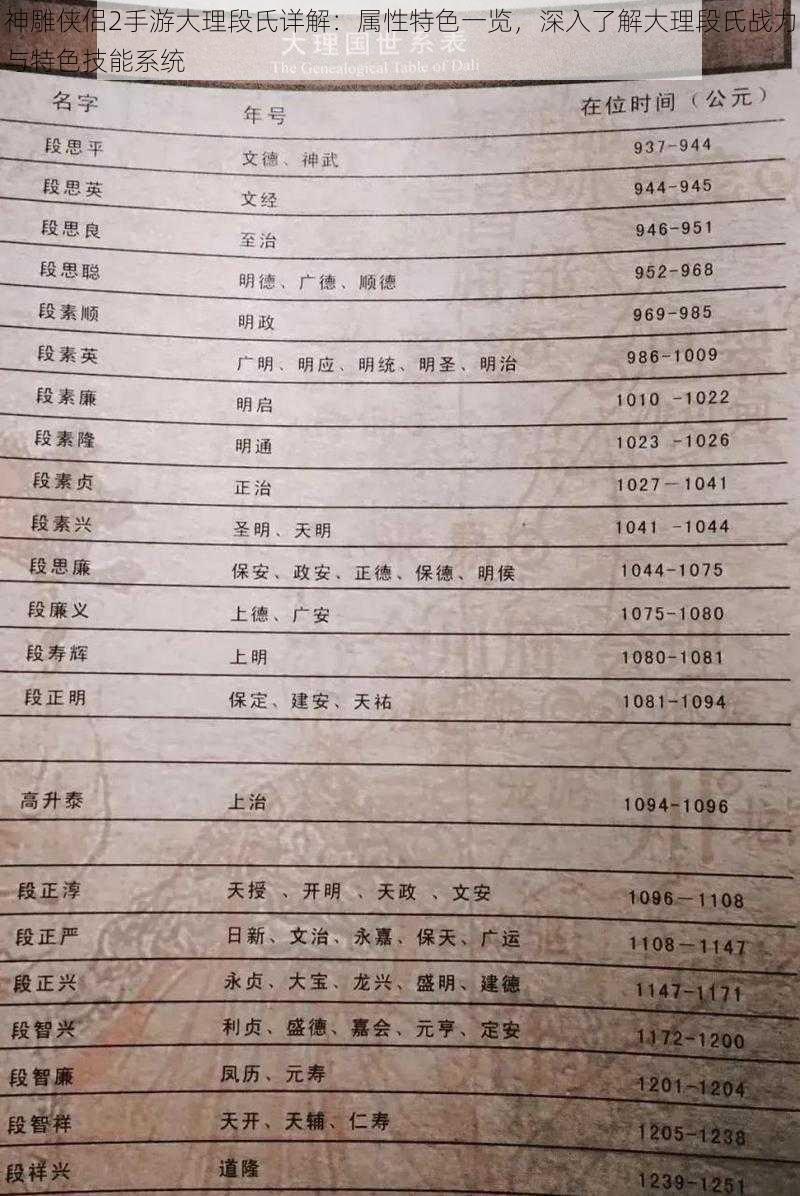 神雕侠侣2手游大理段氏详解：属性特色一览，深入了解大理段氏战力
与特色技能系统
大理国世系表
The Genealogical Table of Dali
名字 年号 在位时间（公元）
段思平 文德、神武 937-944
段思英 文经 944-945
段思良 至治 946-951
段思聪 明德、广德、顺德 952-968
段素顺 明政 969-985
段素英 广明、明应、明统、明圣、明治 986-1009
段素廉 明启 1010 -1022
段素隆 明通 1023 -1026
段素贞 正治 1027－1041
段素兴 圣明、天明 1041 -1044
段思廉 保安、政安、正德、保德、明侯 1044-1075
段廉义 上德、广安 1075-1080
段寿辉 上明 1080-1081
段正明 保定、建安、天祐 1081-1094
高升泰 上治 1094-1096
段正淳 天授 、开明 、天政 、文安 1096－1108
段正严 日新、文治、永嘉、保天、广运 1108－1147
段正兴 永贞、大宝、龙兴、盛明、建德 1147-1171
段智兴 利贞、盛德、嘉会、元亨、定安 1172-1200
段智廉 凤历、元寿 1201-1204
段智祥 天开、天辅、仁寿 1205-1238
段祥兴 道隆 1239-1251